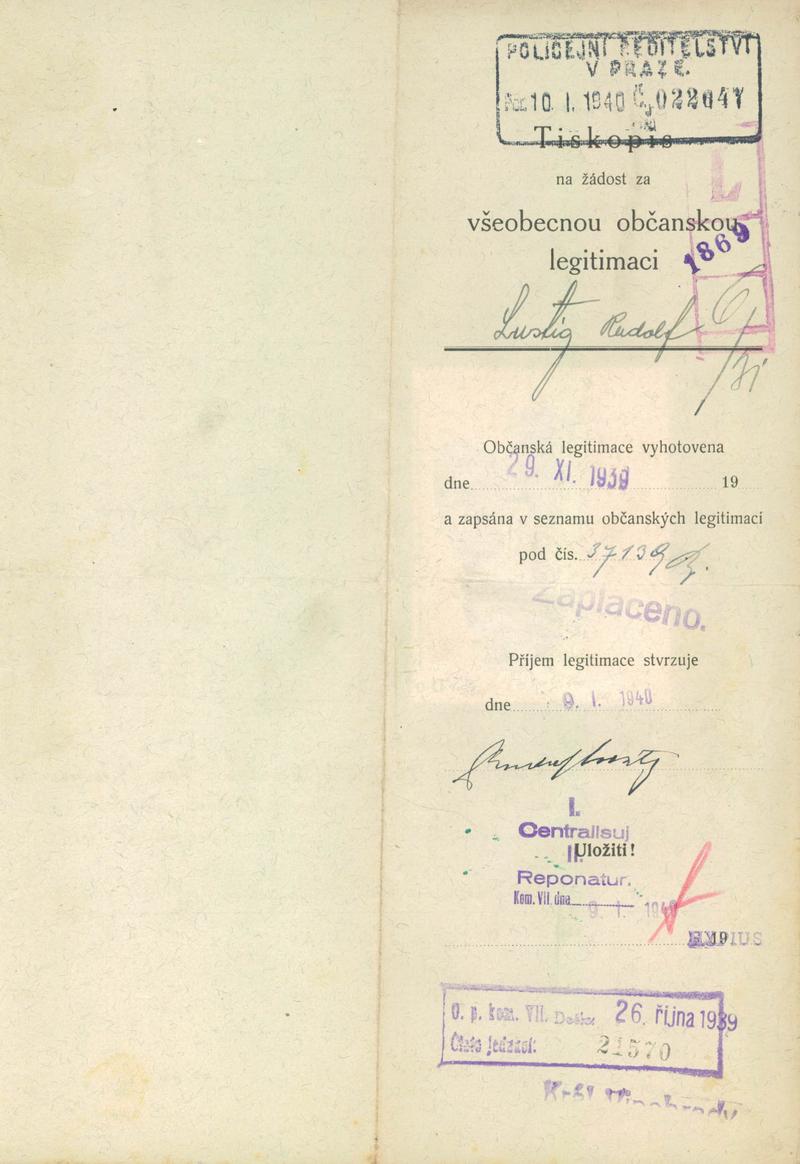 POLICEJNÍ ŘEDITELSTVÍ
V PRAZE.
10. I. 1940 Čj 022647
Tiskopis
na žádost za
všeobecnou občanskou
legitimaci
L
1869
Lustig Rudolf
Občanská legitimace vyhotovena
dne 29. XI. 1939 19
a zapsána v seznamu občanských legitimací
pod čís. 37139
Zaplaceno.
Příjem legitimace stvrzuje
dne 9. I. 1940
I.
Centralisuj
II. Uložiti!
Reponatur.
Kom. VII. dna 9. I. 1940
19
O. p. kom. VII. Došlo: 26. října 1939
Číslo jednací: 21570
Král. Vinohrady